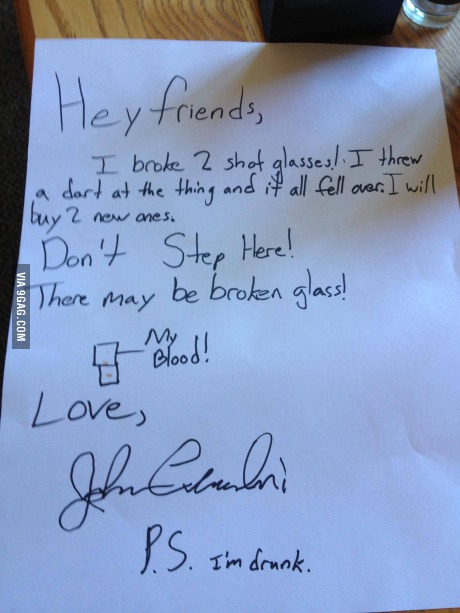 Hey friends,
I broke 2 shot glasses!. I threw
a dart at the thing and it all fell over. I will
buy 2 new ones.
Don't Step Here!
There may be broken glass!
My
Blood!
Love,
John
P.S. I'm drunk.
VIA 9GAG.COM